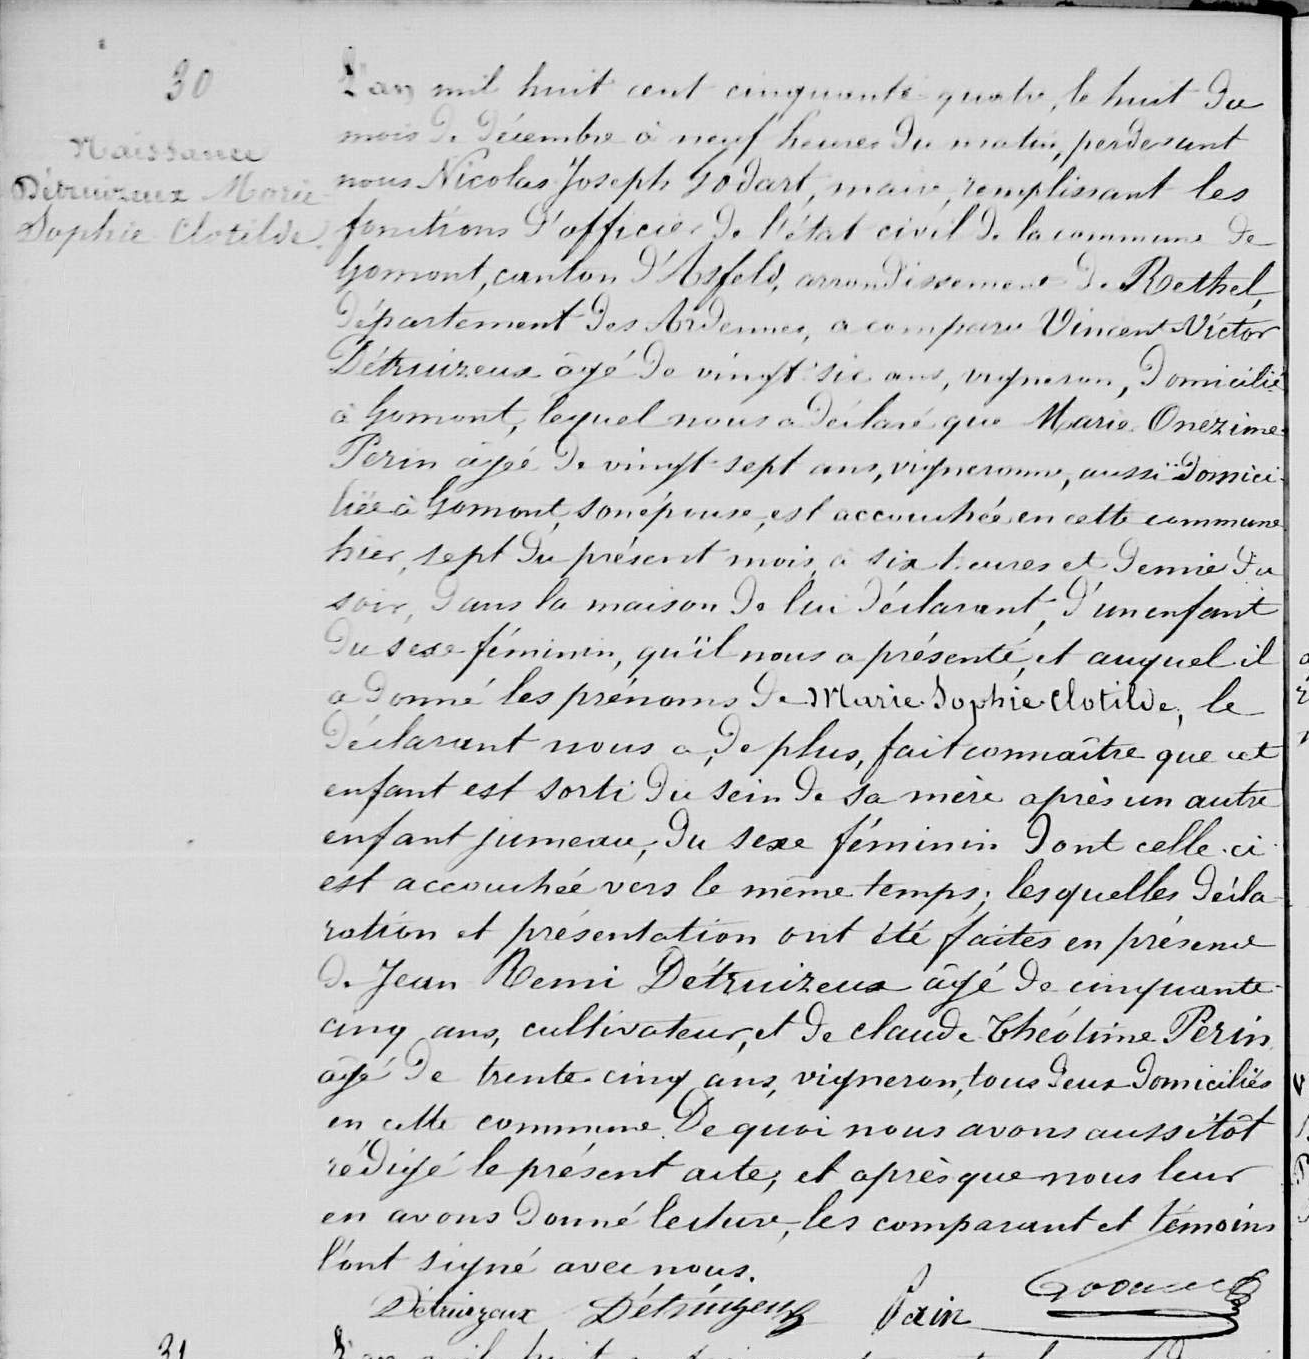 30
Naissance
Détruizeux Marie
Sophie Clotilde.
L'an mil huit cent cinquante-quatre, le huit du
mois de Décembre à neuf heures du matin, perdevant
nous Nicolas Joseph Godart, maire, remplissant les
fonctions d'officier de l'état civil de la commune de
Gomont, canton d'Asfeld, arrondissement de Rethel,
département des Ardennes, a comparu Vincent Victor
Détruizeux âgé de vingt six ans, vigneron, domicilié
à Gomont, lequel nous a déclaré que Marie Onézime
Perin âgée de vingt-sept ans, vigneronne, aussi domici-
liée à Gomont, son épouse, est accouchée en cette commune
hier, sept du présent mois, à six heures et demie du
soir, dans la maison de lui déclarant, d'un enfant
du sexe féminin, qu'il nous a présenté, et auquel il
a donné les prénoms de Marie Sophie Clotilde, le
déclarant nous a, de plus, fait connaître que cet
enfant est sorti du sein de sa mère après un autre
enfant jumeau, du sexe féminin dont celle-ci
est accouchée vers le même temps; lesquelles décla-
ration et présentation ont été faites en présence
de Jean Remi Détruizeux âgé de cinquante-
cinq ans, cultivateur, et de Claude Théotime Perin
âgé de trente-cinq ans, vigneron, tous deux domiciliés
en cette commune. De quoi nous avons aussitôt
rédigé le présent acte, et après que nous leur
en avons donné lecture, les comparant et témoins
l'ont signé avec nous.
Détruizeux Détruizeux Perin Godart
31
L'an mil huit